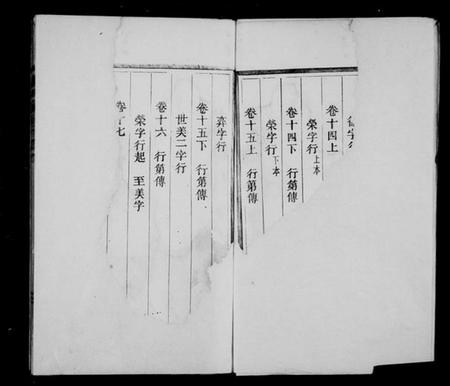 卷十四上
榮字行上本
卷十四下 行第傳
榮字行下本
卷十五上 行第傳
弈字行
卷十五下 行第傳
世美二字行
卷十六 行第傳
榮字行起 至美字
卷十七